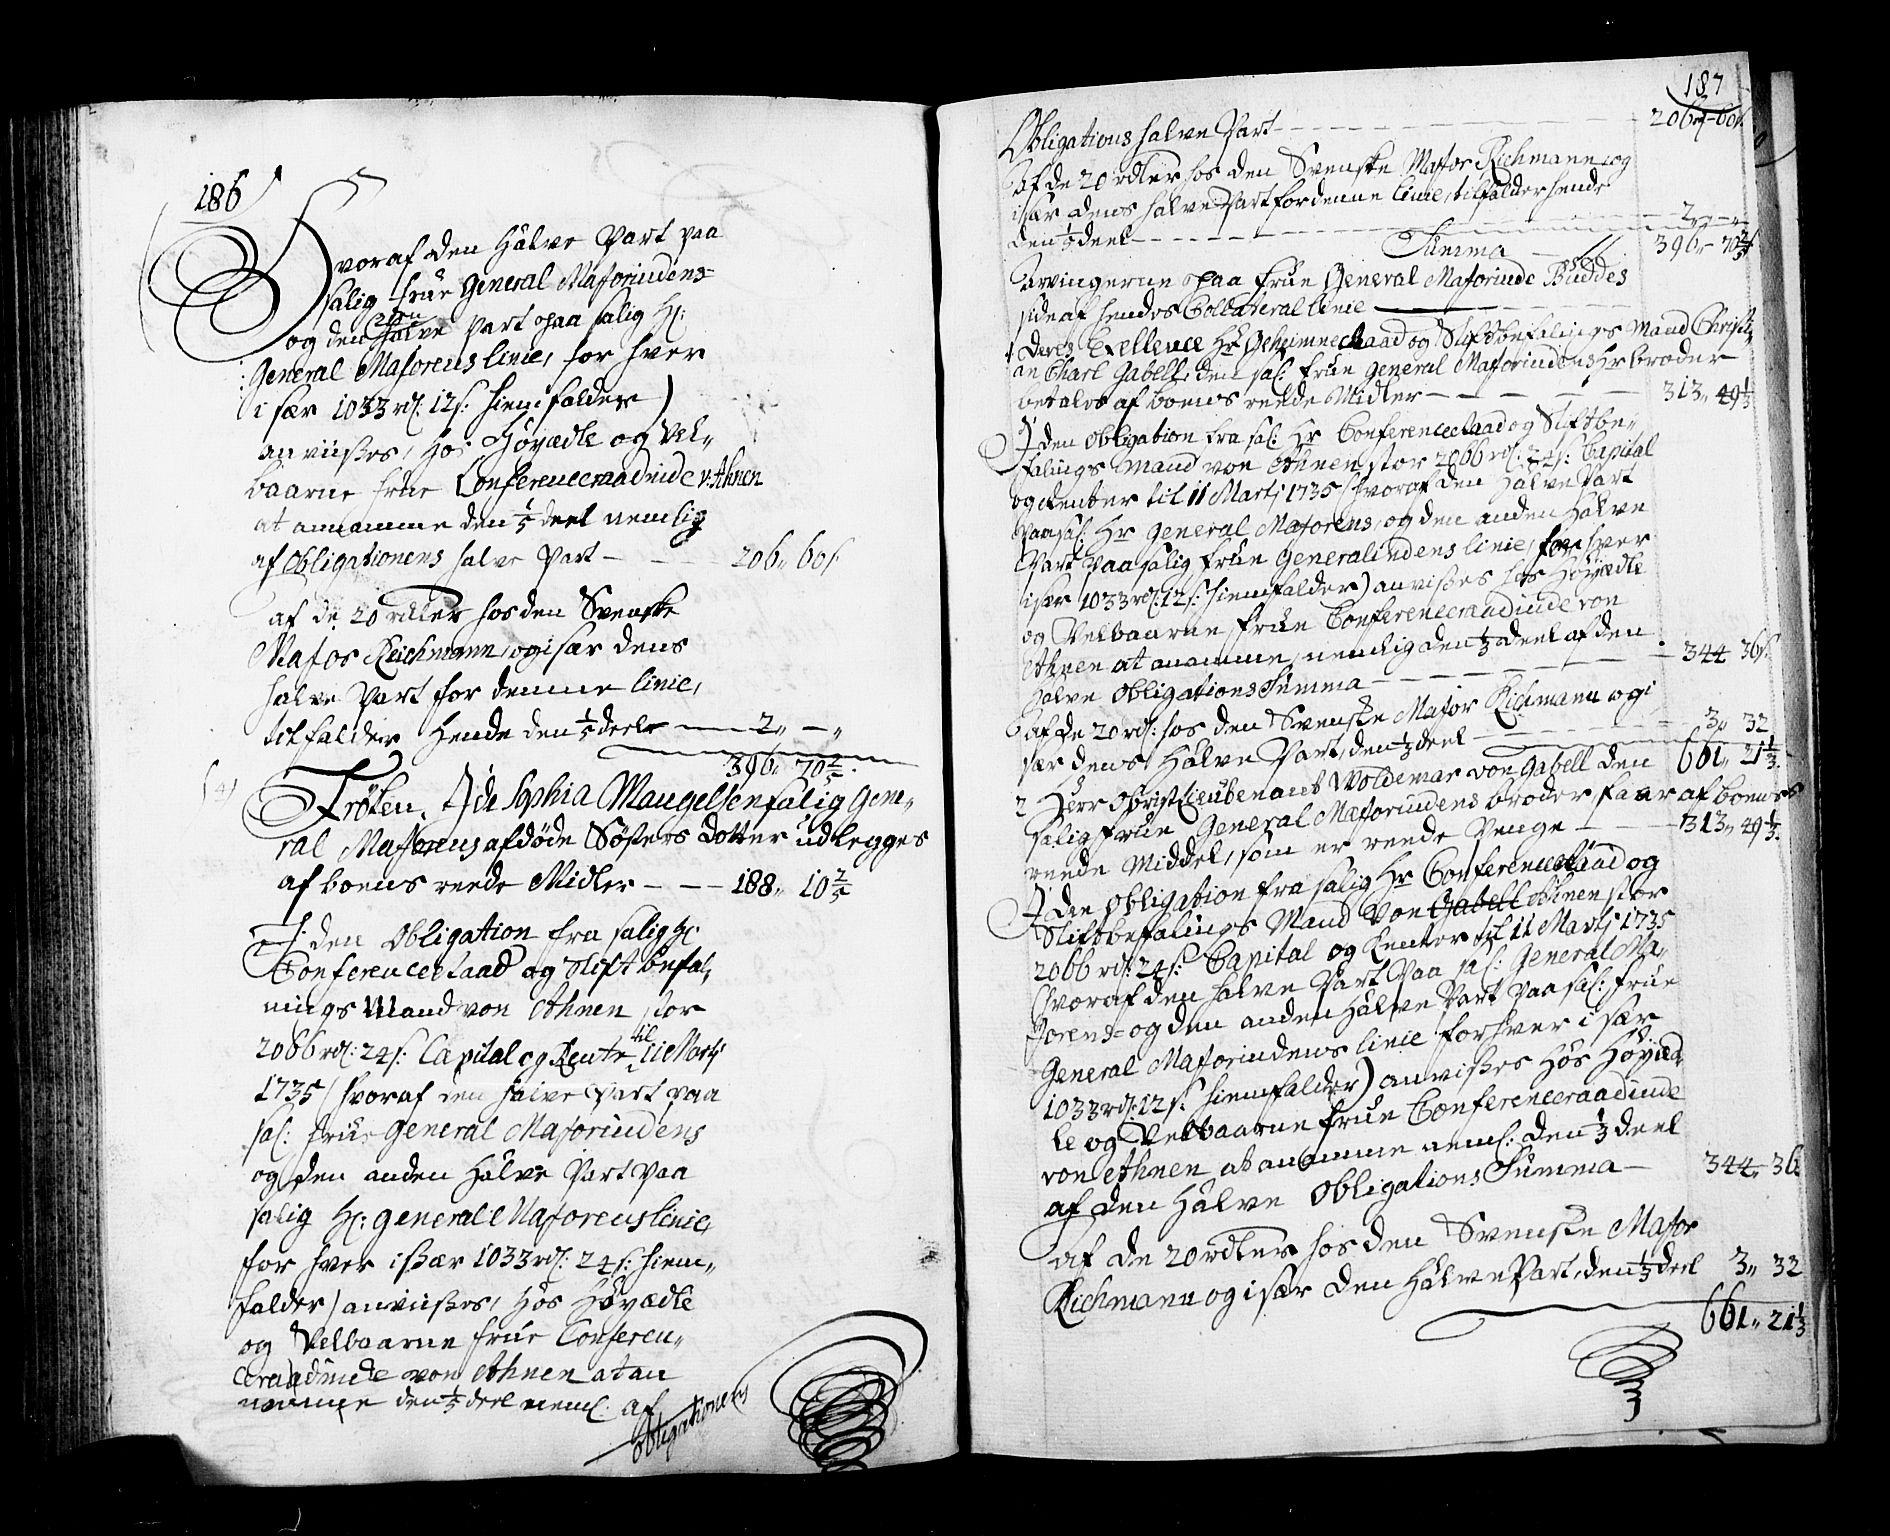 186
Hvoraf den Halve Part paa
salig frue General Majorindens
og den anden halve Part paa salig Hr:
General Majorens linie, for hver
i sær 1033 rd: 12 s: hiemfalder)
anviises, hos Höyædle og Vel-
baarne frue Conferenceraadinde v: Ahnen
at annamme den 1/5 deel nemlig
af Obligationens halve Part - - 206,, 60 s
af de 20 rdler hos den Svenske
Major Reichmann, og i sær dens
halve Part for denne linie,
tilfalder Hende den 1/5 deel - 2,, -,,
396,, 70 2/5.
(4) Fröken Ide Sophia Mangelsen salig Gene-
ral Majorens afdöde Sösters Dotter udlegges
af boens reede Midler - - - 188,, 10 2/5
I den Obligation fra salig Hr
Conferenceraad og Stiftbefal-
nings Mand von Ahnen stor
2066 rd: 24 s: Capital og Rente til 11 Martj
1735 (hvoraf den halve Part paa
sal: frue General Majorindens
og den anden Halve Part paa
salig Hr: General Majorens linie,
for hver i sær 1033 rd: 24 s: hiem-
falder) anviises, Hos Höyædle
og Velbaarne frue Conferen-
ceraadinde von Ahnen at an
namme den 1/5 deel neml. af
Obligationens
187
Obligations halve Part - - - 206 rd - 60 s.
af de 20 rdler hos den Svenske Major Richmann og
i sær dens halve Part for denne linie, tilfalder hende
den 1/5 deel - - - 2,, -,,
Summa 396,, 70 2/5
Arvingerne paa frue General Majorinde Buddes
side af hendes Collateral linie
1 Deres Exellence Hr Geheimeraad og Stiftbefalings Mand Christi-
an Charl Gabell, den sal: frue General Majorindens Hr broder
betales af boens reede Midler - - - 313,, 49 1/3
I den Obligation fra sal: Hr Conferenceraad og Stiftbe-
falings Mand von Ahnen stor 2066 rd: 24 s: Capital
og Renter til 11 Martj 1735 (hvoraf den halve Part
Paa sal: Hr General Majorens, og den anden Halve
Part Paa salig frue Generalindens linie, for hver
i sær 1033 rd: 12 s: hiemfalder) anvises hos Höyædle
og Velbaarne frue Conferenceraadinde von
Ahnen at anamme, nemlig den 1/3 deel af den
Halve Obligations Summa - - - 344 36 s.
af de 20 rd: hos den Svenske Major Richmann og i
sær dens Halve Part, den 1/3 deel - - 3,, 32
661,, 21 1/3.
2 Herr Obrist Lieutenant Woldemar von Gabell den
salig frue General Majorindens broder, faar af boens
reede Middel, som er reede Penge - - - 313,, 49 1/3.
I den Obligation fra salig Hr Conferenceraad og
Stiftbefalings Mand von Gabell Ahnen stor
2066 rd: 24 s: Capital og Renter til 11 Martj 1735
(hvoraf den halve Part Paa sal: General Ma-
jorens og den anden Halve Part Paa sal: frue
General Majorindens linie for hver i sær
1033 rd: 12 s: hiemfalder) anvises Hos Höyæd-
le og Velbaarne frue Conferenceraadinde
von Ahnen at anamme neml: den 1/3 deel
af den Halve Obligations Summa - 344,, 36
af de 20 rdler hos den Svenske Major
Richmann og i sær den Halve Part, den 1/3 deel 3,, 32
661,, 21 1/3